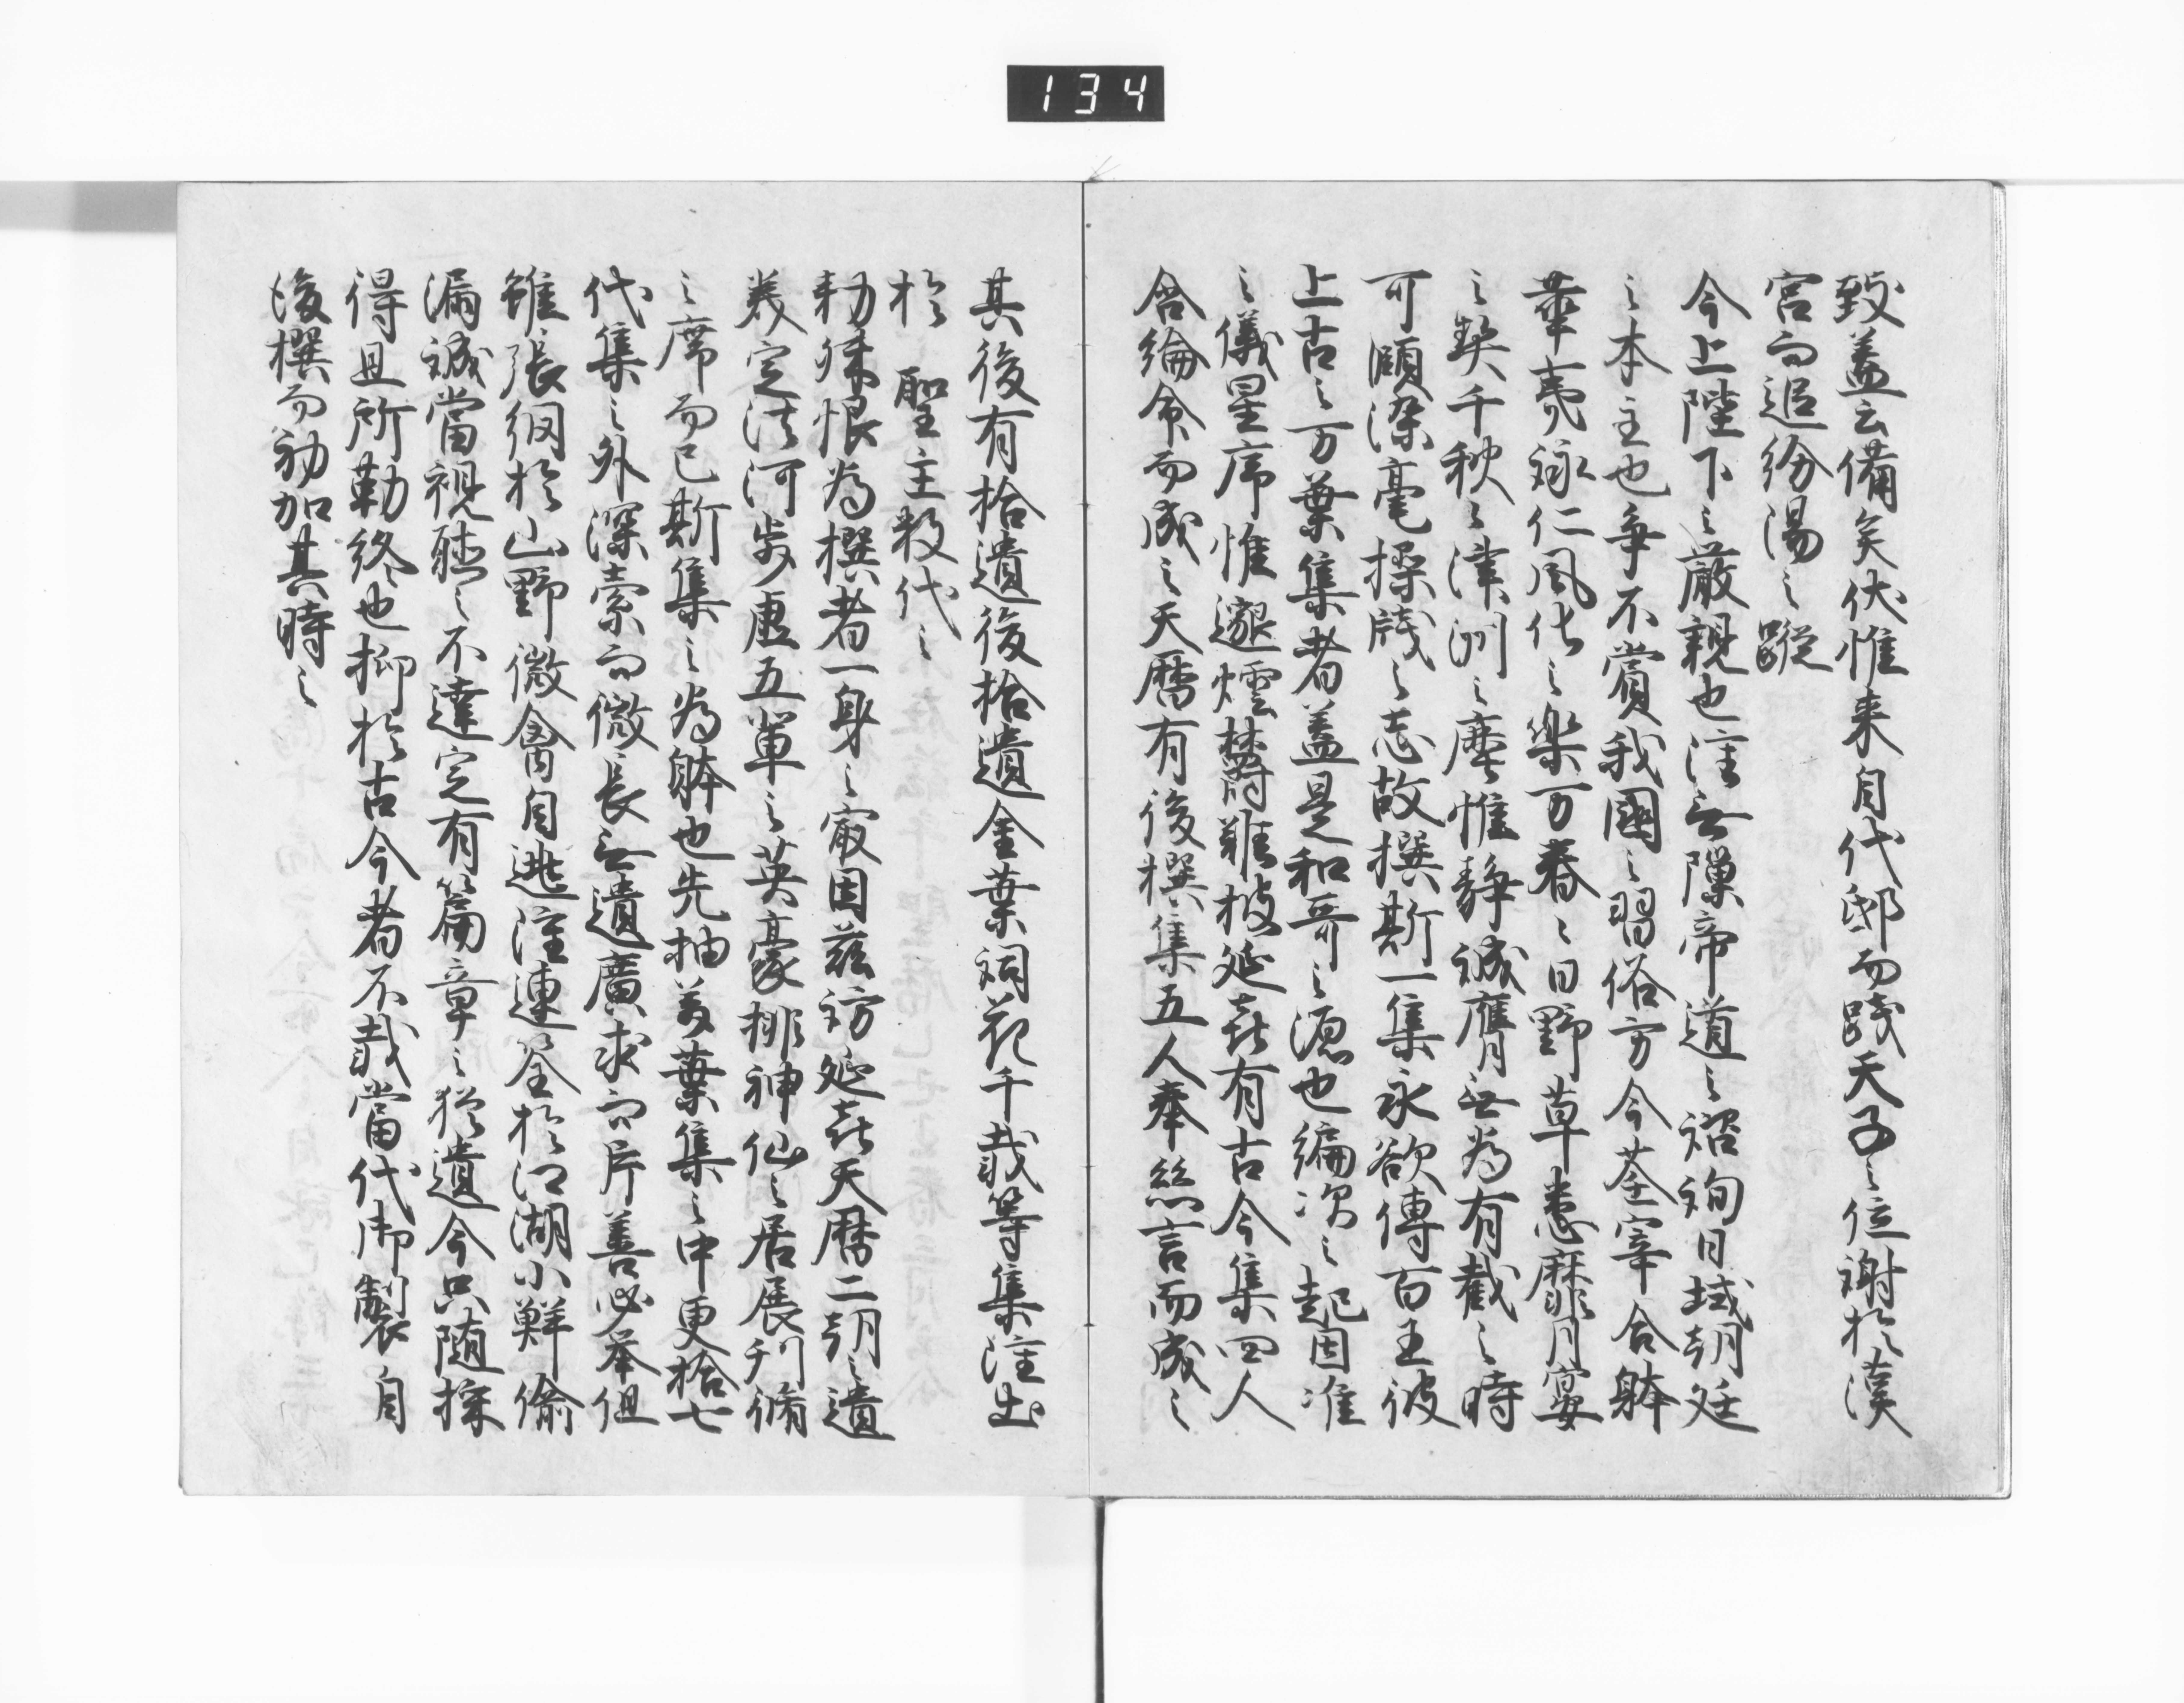 134
致盖云備矣伏惟来自代邸而践天子之位謝於漢
宮而追紛湯之蹤
今上陛下之厳親也雖無隙帝道之諮詢日域朝廷
之本主也争不賞我國之習俗方今荃宰合躰
華夷詠仁風化之樂万春之日野草悉靡月宴
之契千秋之津洲之塵惟静誠膺無為有截之時
可頤染毫操牋之志故撰斯一集永欲傳百王彼
上古之万葉集者盖是和哥之源也編次之起因准
之儀星序惟邈煙欝難披延㐂有古今集四人
含綸命而成之天暦有後撰集五人奉絲言而成之
其後有拾遺後拾遺金葉詞花千載等集雖出
於　聖主数代之
勅殊恨為撰者一身之最因茲訪延㐂天暦二朝之遺
美定法河歩虚五輩之英豪排神仙之居展刊脩
之席而已斯集之為躰也先抽万葉集之中更拾七
代集之外深索而微長無遺廣求而片善必挙但
雖張網於山野微禽自逃雖連筌於江湖小鮮偷
漏誠當視聴之不達定有篇章之猶遺今只随採
得且所勒終也抑於古今者不載當代御製自
後撰而初加其時之